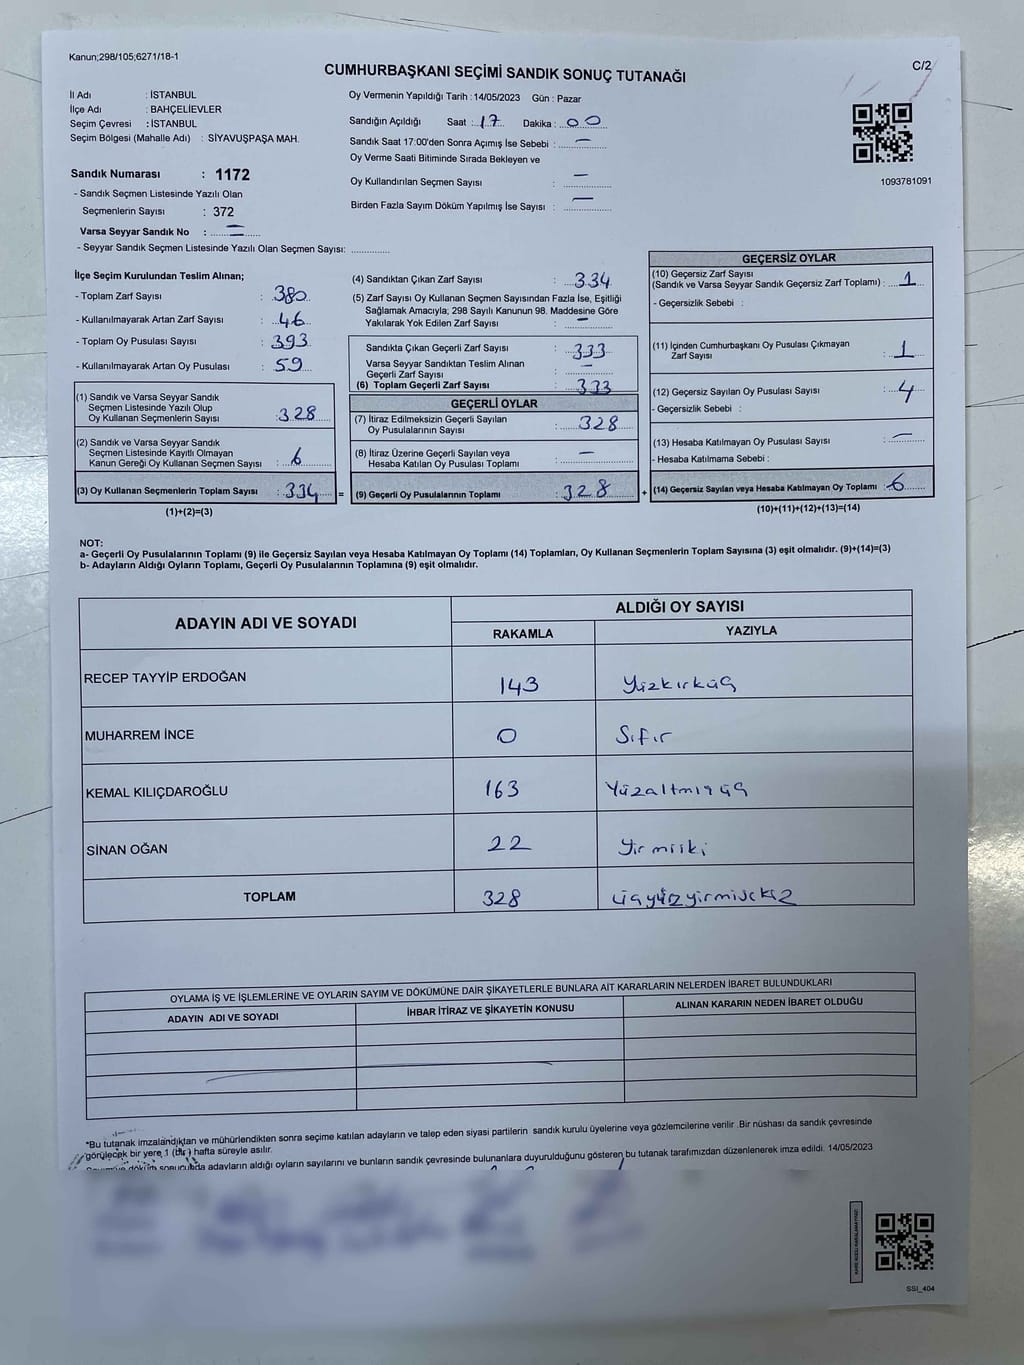 Kanun;298/105;6271/18-1
C/2
CUMHURBAŞKANI SEÇİMİ SANDIK SONUÇ TUTANAĞI
İl Adı : İSTANBUL
İlçe Adı : BAHÇELİEVLER
Seçim Çevresi : İSTANBUL
Seçim Bölgesi (Mahalle Adı) : SİYAVUŞPAŞA MAH.
Oy Vermenin Yapıldığı Tarih : 14/05/2023 Gün : Pazar
Sandığın Açıldığı Saat : 17 Dakika : 00
Sandık Saat 17:00'den Sonra Açımış İse Sebebi : —
Oy Verme Saati Bitiminde Sırada Bekleyen ve
Oy Kullandırılan Seçmen Sayısı : —
Birden Fazla Sayım Döküm Yapılmış İse Sayısı : —
1093781091
Sandık Numarası : 1172
- Sandık Seçmen Listesinde Yazılı Olan
Seçmenlerin Sayısı : 372
Varsa Seyyar Sandık No : —
- Seyyar Sandık Seçmen Listesinde Yazılı Olan Seçmen Sayısı: ............
İlçe Seçim Kurulundan Teslim Alınan;
- Toplam Zarf Sayısı : 380
- Kullanılmayarak Artan Zarf Sayısı : 46
- Toplam Oy Pusulası Sayısı : 393
- Kullanılmayarak Artan Oy Pusulası : 59
(1) Sandık ve Varsa Seyyar Sandık
Seçmen Listesinde Yazılı Olup
Oy Kullanan Seçmenlerin Sayısı : 328
(2) Sandık ve Varsa Seyyar Sandık
Seçmen Listesinde Kayıtlı Olmayan
Kanun Gereği Oy Kullanan Seçmen Sayısı : 6
(3) Oy Kullanan Seçmenlerin Toplam Sayısı : 334 =
(1)+(2)=(3)
(4) Sandıktan Çıkan Zarf Sayısı : 334
(5) Zarf Sayısı Oy Kullanan Seçmen Sayısından Fazla İse, Eşitliği
Sağlamak Amacıyla; 298 Sayılı Kanunun 98. Maddesine Göre
Yakılarak Yok Edilen Zarf Sayısı : —
Sandıkta Çıkan Geçerli Zarf Sayısı : 333
Varsa Seyyar Sandıktan Teslim Alınan
Geçerli Zarf Sayısı : —
(6) Toplam Geçerli Zarf Sayısı : 333
GEÇERLİ OYLAR
(7) İtiraz Edilmeksizin Geçerli Sayılan
Oy Pusulalarının Sayısı : 328
(8) İtiraz Üzerine Geçerli Sayılan veya
Hesaba Katılan Oy Pusulası Toplamı : —
(9) Geçerli Oy Pusulalarının Toplamı : 328 +
GEÇERSİZ OYLAR
(10) Geçersiz Zarf Sayısı
(Sandık ve Varsa Seyyar Sandık Geçersiz Zarf Toplamı) : 1
- Geçersizlik Sebebi :
(11) İçinden Cumhurbaşkanı Oy Pusulası Çıkmayan
Zarf Sayısı : 1
(12) Geçersiz Sayılan Oy Pusulası Sayısı : 4
- Geçersizlik Sebebi :
(13) Hesaba Katılmayan Oy Pusulası Sayısı : —
- Hesaba Katılmama Sebebi :
(14) Geçersiz Sayılan veya Hesaba Katılmayan Oy Toplamı : 6
(10)+(11)+(12)+(13)=(14)
NOT:
a- Geçerli Oy Pusulalarının Toplamı (9) ile Geçersiz Sayılan veya Hesaba Katılmayan Oy Toplamı (14) Toplamları, Oy Kullanan Seçmenlerin Toplam Sayısına (3) eşit olmalıdır. (9)+(14)=(3)
b- Adayların Aldığı Oyların Toplamı, Geçerli Oy Pusulalarının Toplamına (9) eşit olmalıdır.
ADAYIN ADI VE SOYADI
ALDIĞI OY SAYISI
RAKAMLA YAZIYLA
RECEP TAYYİP ERDOĞAN 143 Yüzkırküç
MUHARREM İNCE 0 Sıfır
KEMAL KILIÇDAROĞLU 163 Yüzaltmışüç
SİNAN OĞAN 22 Yirmiiki
TOPLAM 328
OYLAMA İŞ VE İŞLEMLERİNE VE OYLARIN SAYIM VE DÖKÜMÜNE DAİR ŞİKAYETLERLE BUNLARA AİT KARARLARIN NELERDEN İBARET BULUNDUKLARI
ADAYIN ADI VE SOYADI İHBAR İTİRAZ VE ŞİKAYETİN KONUSU ALINAN KARARIN NEDEN İBARET OLDUĞU
*Bu tutanak imzalandıktan ve mühürlendikten sonra seçime katılan adayların ve talep eden siyasi partilerin sandık kurulu üyelerine veya gözlemcilerine verilir .Bir nüshası da sandık çevresinde
görülecek bir yere 1 (bir ) hafta süreyle asılır.
döküm sonucunda adayların aldığı oyların sayılarını ve bunların sandık çevresinde bulunanlara duyurulduğunu gösteren bu tutanak tarafımızdan düzenlenerek imza edildi. 14/05/2023
SSI_404